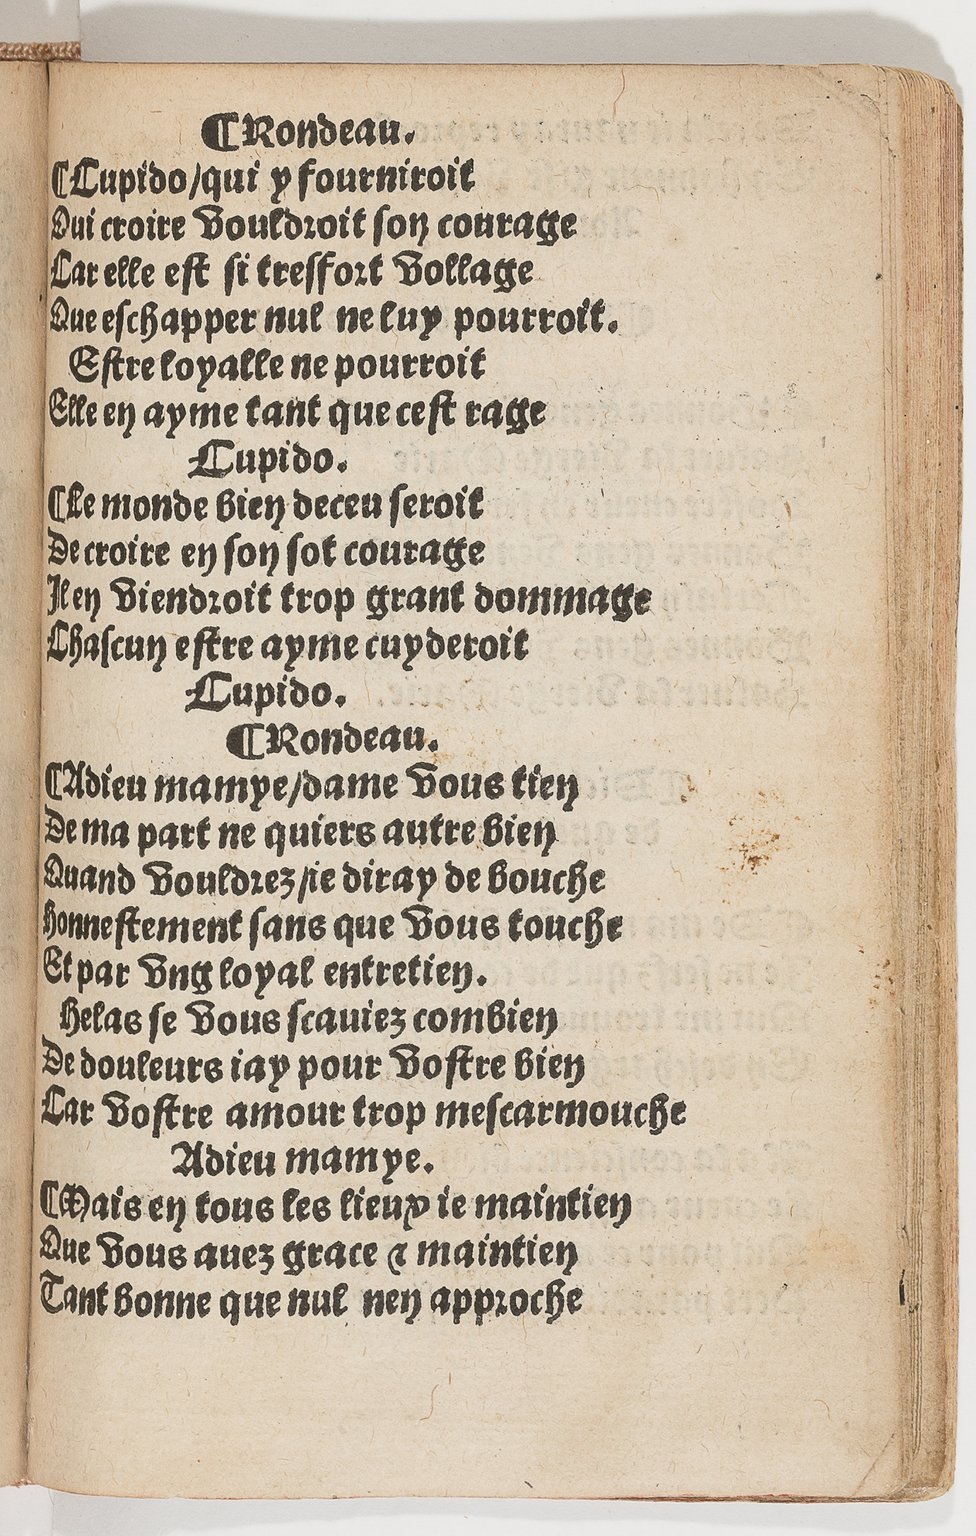 ¶Rondeau.
¶Cupido/qui y fourniroit
Qui croire vouldroit son courage
Car elle est si tresfort vollage
Que eschapper nul ne luy pourroit.
Estre loyalle ne pourroit
Elle en ayme tant que cest rage
Cupido.
¶Le monde bien deceu seroit
De croire en son sot courage
Il en viendroit trop grant dommage
Chascun estre ayme cuyderoit
Cupido.
¶Rondeau.
¶Adieu mamye/dame vous tien
De ma part ne quiers autre bien
Quand vouldrez/ie diray de bouche
Honnestement sans que vous touche
Et par vng loyal entretien.
Helas se vous scauiez combien
De douleurs iay pour vostre bien
Car vostre amour trop mescarmouche
Adieu mamye.
¶Mais en tous les lieux ie maintien
Que vous auez grace & maintien
Tant bonne que nul nen approche